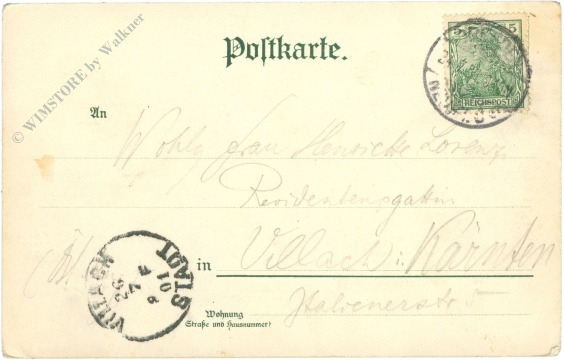 © WIMSTORE by Walkner
Postkarte.
5
REICHSPOST
An
Wohlg. Frau Henricke Lorenz
Revidentensgattin
in Villach i. Kärnten
Italienerstr. 5
Wohnung
(Straße und Hausnummer)
VILLACH STADT
26 7 01